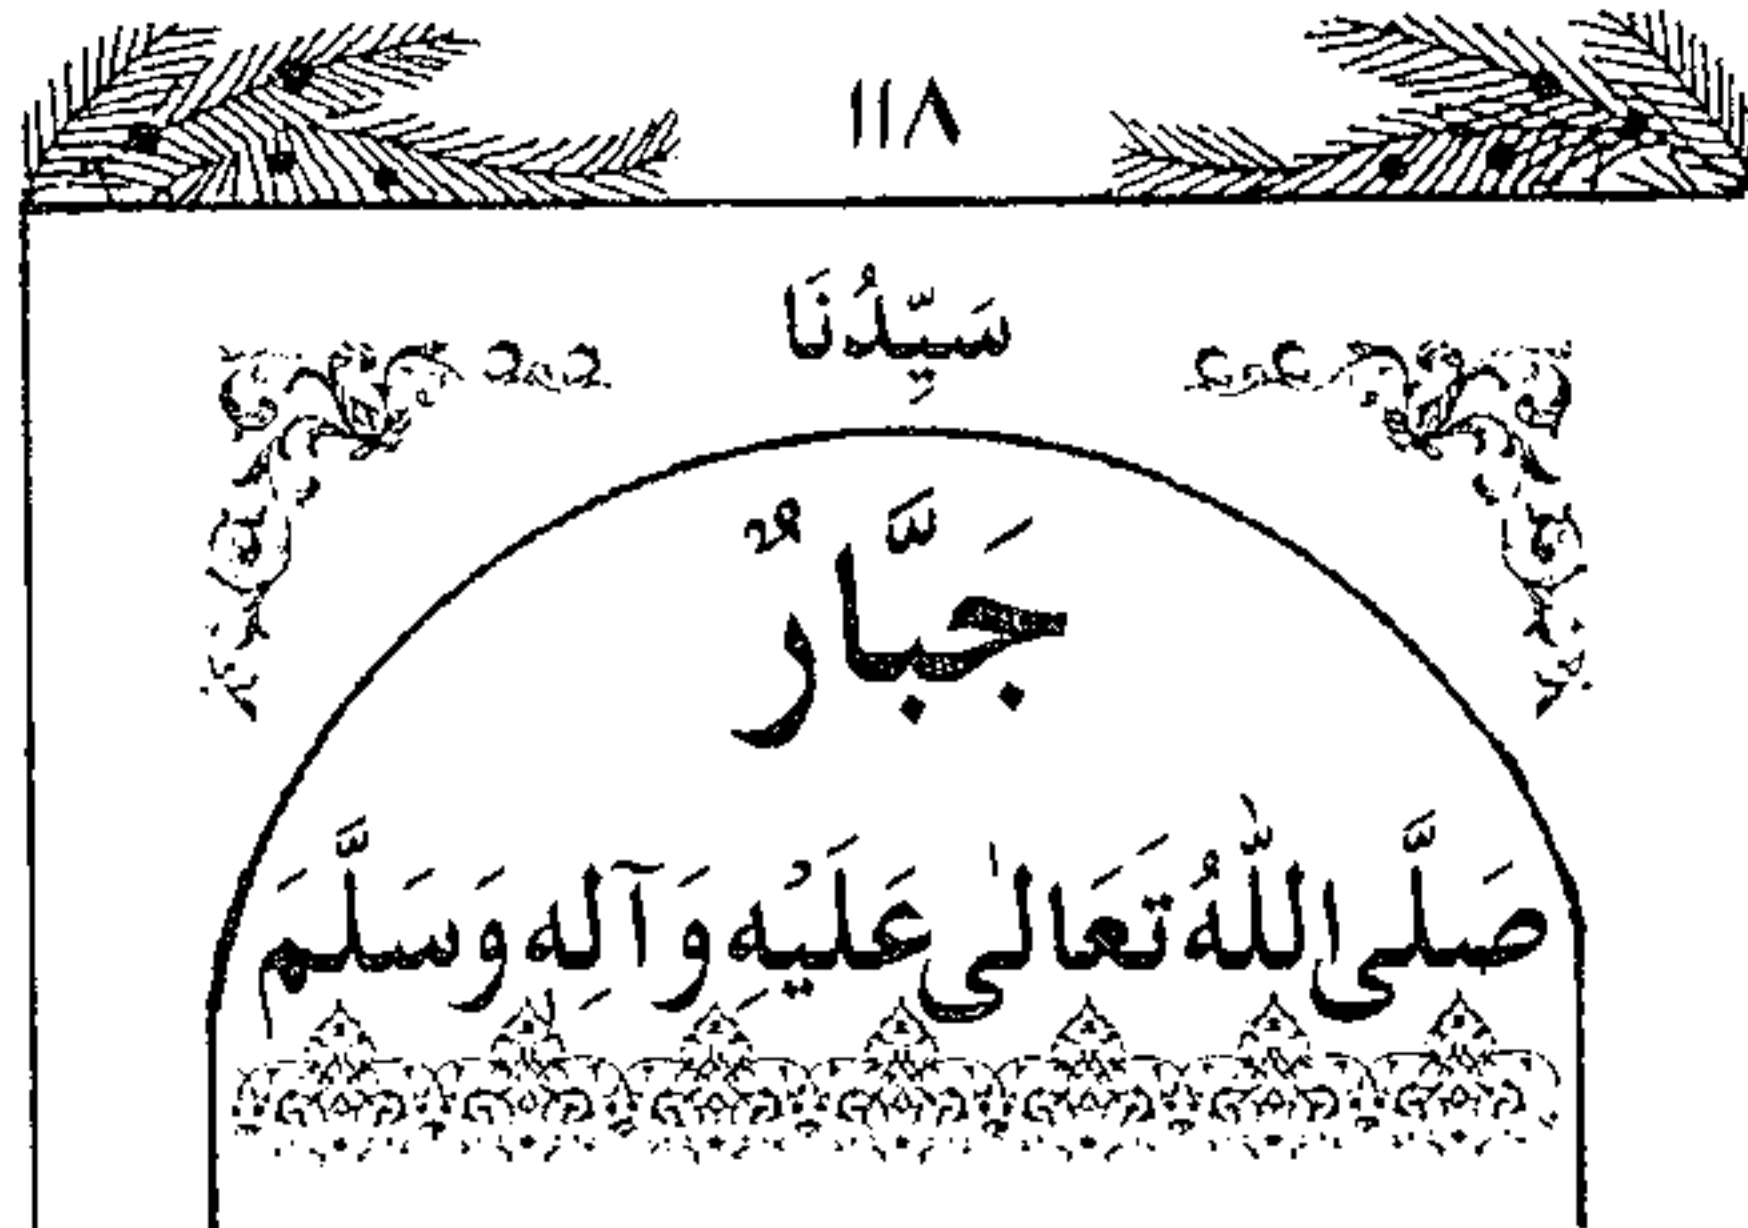 ١١٨
سَيِّدُنَا
جَبَّارٌ
صَلَّى اللّٰهُ تَعَالٰى عَلَيْهِ وَآلِهٖ وَسَلَّمَ